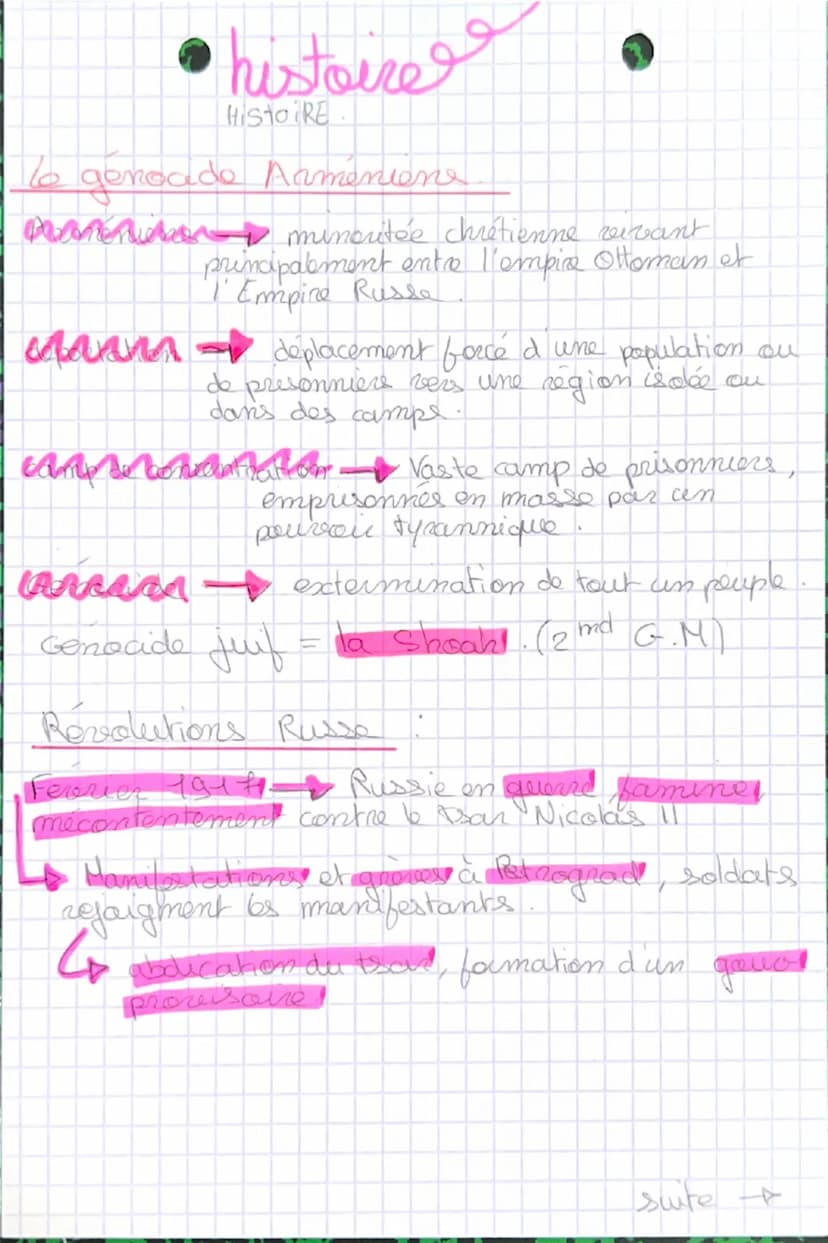 histoire
HiStoiRE.
le génocide Arméniens
Arméniens → minoritée chrétienne vivant
principalement entre l'empire Ottoman et
l'Empire Russe.
déportation → déplacement forcé d'une population ou
de prisonniers vers une région isolée ou
dans des camps.
camp de concentration → Vaste camp de prisonniers,
emprisonnés en masse par un
pouvoir tyrannique.
Génocide → extermination de tout un peuple.
Génocide juif = la Shoah. (2nd G.M)
Révolutions Russe :
Février 1917 → Russie en guerre, famine,
mécontentement contre le tsar Nicolas II
→ Manifestations et grèves à Petrograd, soldats
rejoignent les manifestants.
→ abdication du tsar, formation d'un gouv
provisoire
suite →